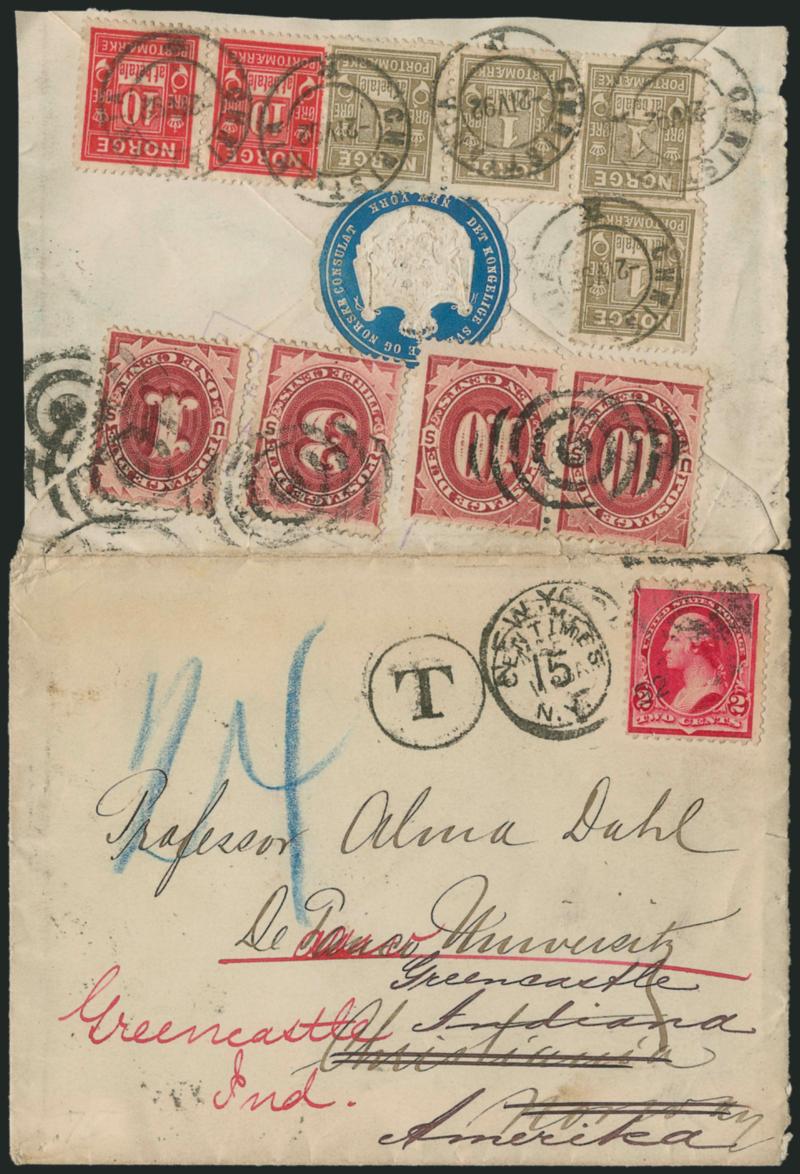 NORGE
PORTOMÆRKE
at betale
10
ØRE
NORGE
PORTOMÆRKE
at betale
10
ØRE
NORGE
PORTOMÆRKE
at betale
ØRE
NORGE
PORTOMÆRKE
at betale
1
ØRE
NORGE
PORTOMÆRKE
at betale
1
ØRE
NORGE
PORTOMÆRKE
at betale
1
ØRE
CHRISTIANIA
-2 IV 92
DET KONGELIGE SVENSKE OG NORSKE CONSULAT
NEW YORK
POSTAGE DUE
1
ONE CENT
U S
POSTAGE DUE
3
THREE CENTS
U S
POSTAGE DUE
10
TEN CENTS
U S
POSTAGE DUE
10
TEN CENTS
U S
T
NEW YORK
15
N.Y.
UNITED STATES POSTAGE
2 2
TWO CENTS
24
Professor Alma Dahl
De Pauw University
Greencastle
Indiana
Greencastle
Christiania
Ind.
Norway
Amerika